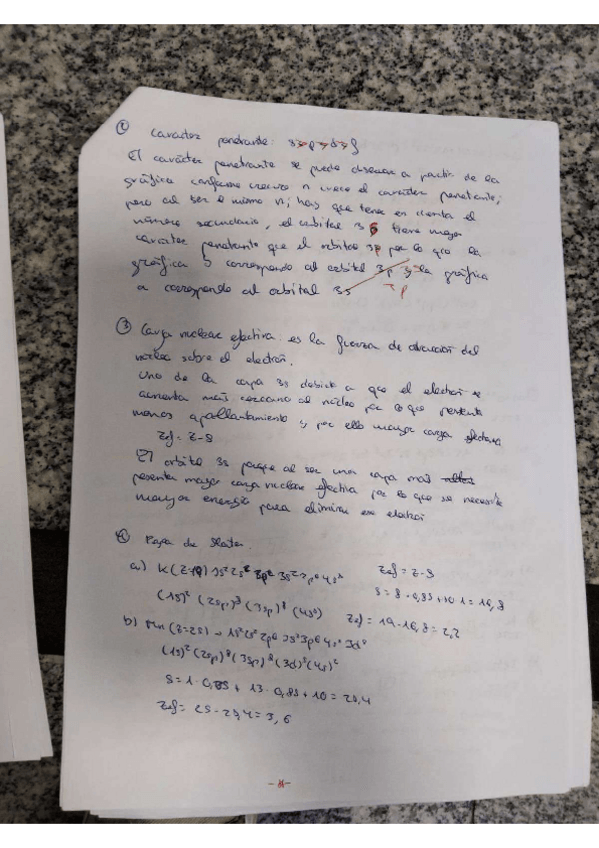 ② Caracter penetrante: s>p>d>f
El carácter penetrante se puede observar a partir de la
gráfica conforme crezca n crece el carácter penetrante;
pero al ser el mismo n; hay que tener en cuenta el
número secundario, el orbital 3s tiene mayor
carácter penetrante que el orbital 3p por lo que la
gráfica b corresponde al orbital 3p y la gráfica
a corresponde al orbital 3s 3p
③ Carga nuclear efectiva: es la fuerza de atracción del
núcleo sobre el electrón.
Uno de la capa 3s debido a que el electrón se
encuentra más cercano al núcleo por lo que presenta
menos apantallamiento y por ello mayor carga efectiva
Zef = Z-S
El orbital 3s porque al ser una capa más
presenta mayor carga nuclear efectiva por lo que se necesita
mayor energía para eliminar ese electrón
④ Regla de Slater.
a) K (Z=19) 1s² 2s² 2p⁶ 3s² 3p⁶ 4s¹ Zef = Z-S
(1s)² (2sp)⁸ (3sp)⁸ (4s¹) S = 8·0,85+10·1 = 16,8
Zef = 19-16,8 = 2,2
b) Mn (Z=25) → 1s² 2s² 2p⁶ 3s² 3p⁶ 4s² 3d⁵
(1s)² (2sp)⁸ (3sp)⁸ (3d)⁵ (4s)²
S = 1·0,35 + 13·0,85 + 10 = 21,4
Zef = 25-21,4 = 3,6